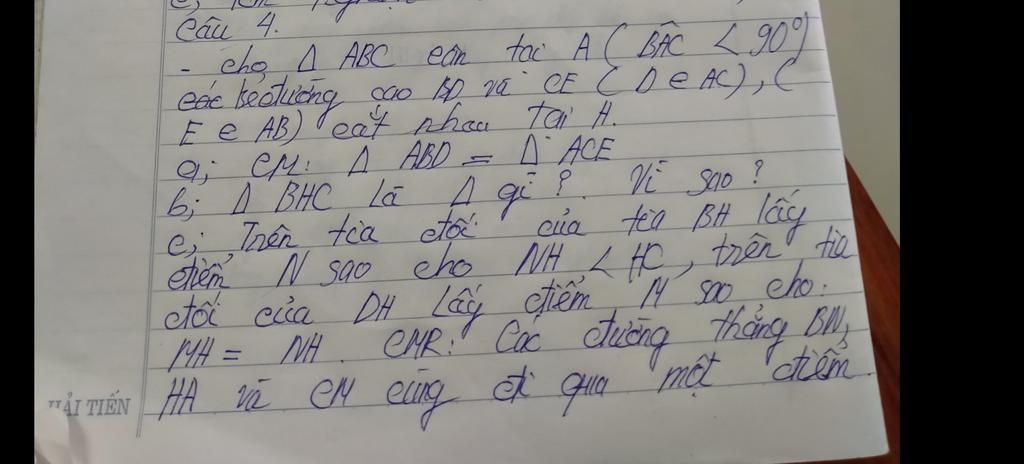 Câu 4.
- cho Δ ABC cân tại A ( BÂC < 90°)
các kẻ đường cao BD và CE ( D ∈ AC), (
E ∈ AB) cắt nhau tại H.
a; CM: Δ ABD = Δ ACE
b; Δ BHC là Δ gì ? Vì sao ?
c; Trên tia đối của tia BH lấy
điểm N sao cho NH < HC, trên tia
đối của DH lấy điểm M sao cho.
MH = NH. CMR: Các đường thẳng BN,
HA và CM cùng đi qua một điểm.
HẢI TIẾN